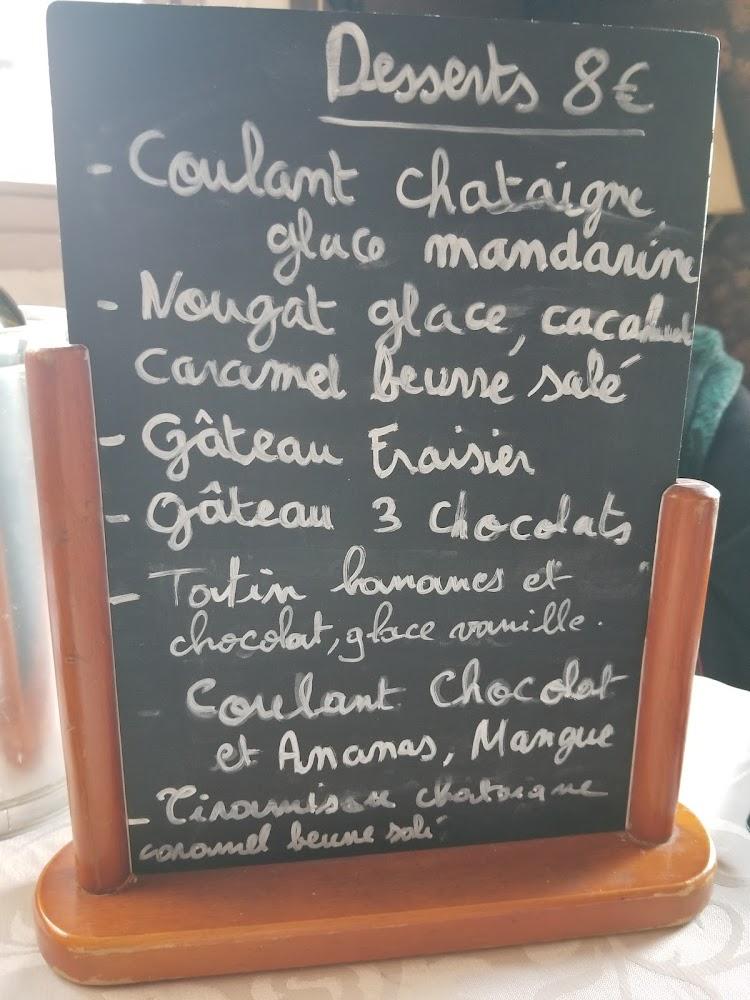 Desserts 8€
- Coulant chataigne
glace mandarine
- Nougat glace,
caramel beurre salé
- Gâteau Fraisier
- Gâteau 3 Chocolats
- Tatin bananes et
chocolat, glace vanille.
- Coulant Chocolat
et Ananas, Mangue
- Tiramisu chataigne
caramel beurre salé